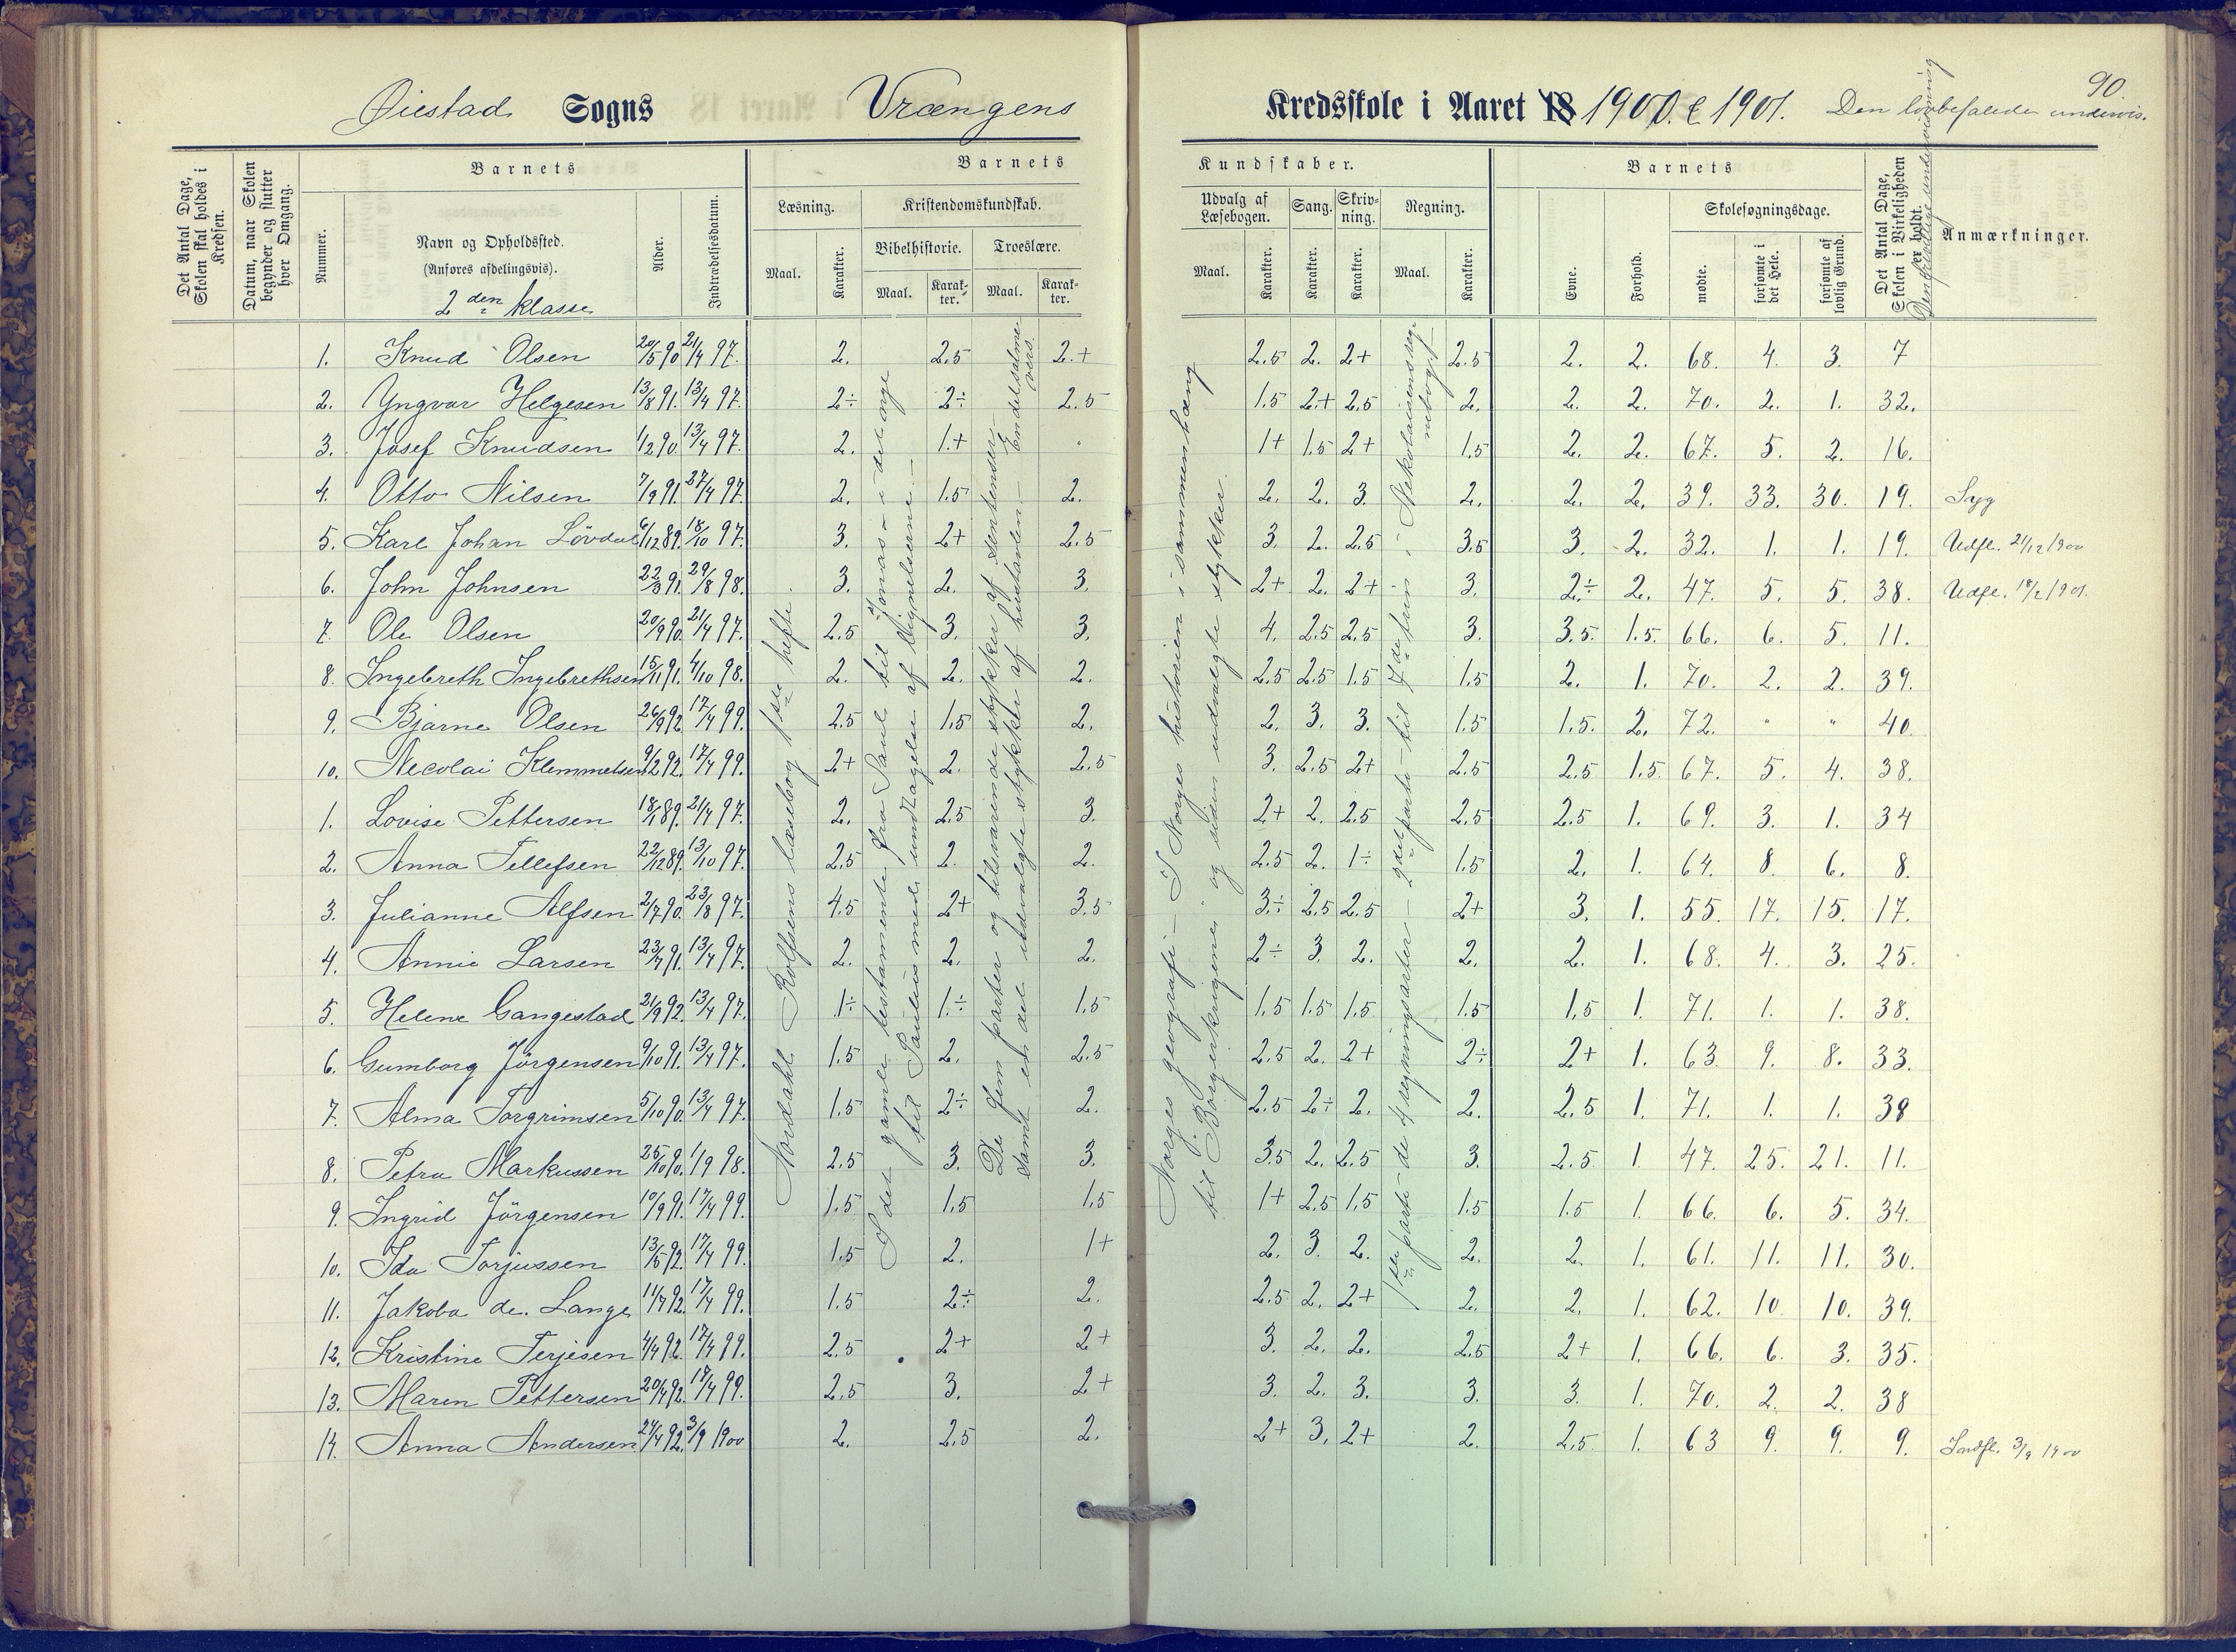 90.
Øiestad Sogns Vrængens Kredsskole i Aaret 18 1900 & 1901. Den lovbefalede undervis.
Det Antal Dage, Skolen skal holdes i Kredsen.
Datum, naar Skolen begynder og slutter hver Omgang.
Barnets
Nummer.
Navn og Opholdssted.
(Anføres afdelingsvis).
2den klasse
Alder.
Indtrædelsesdatum.
Barnets Kundskaber.
Læsning.
Maal. Karakter.
Kristendomskundskab.
Bibelhistorie. Troeslære.
Maal. Karakter. Maal. Karakter.
Udvalg af Læsebogen. Sang. Skrivning. Regning.
Maal. Karakter. Karakter. Karakter. Maal. Karakter.
Barnets
Evne. Forhold.
Skolesøgningsdage.
mødte. forsømte i det Hele. forsømte af lovlig Grund.
Det Antal Dage, Skolen i Virkeligheden er holdt.
Den frivillige undervisning
Anmærkninger.
1. Knud Olsen 20/5 90 21/4 97. 2. 2.5 2.+ 2.5 2. 2+ 2.5 2. 2. 68. 4. 3. 7
2. Yngvar Helgesen 13/8 91. 13/4 97. 2÷ 2÷ 2.5 1.5 2.+ 2.5 2. 2. 2. 70. 2. 1. 32.
3. Josef Knudsen 1/2 90. 13/4 97. 2. 1.+ " 1+ 1.5 2+ 1.5 2. 2. 67. 5. 2. 16.
4. Otto Nilsen 7/9 91. 27/4 97. 2. 1.5 2. 2. 2. 3. 2. 2. 2. 39. 33. 30. 19. Syg
5. Karl Johan Lövdal 6/12 89. 18/10 97. 3. 2+ 2.5 3. 2. 2.5 3.5 3. 2. 32. 1. 1. 19. Udfl. 21/12 1900
6. John Johnsen 22/3 91. 29/8 98. 3. 2. 3. 2+ 2. 2+ 3. 2÷ 2. 47. 5. 5. 38. Udfl. 18/2 1901.
7. Ole Olsen 20/9 90. 21/4 97. 2.5 3. 3. 4. 2.5 2.5 3. 3.5. 1.5. 66. 6. 5. 11.
8. Ingebreth Ingebrethsen 15/11 91. 4/10 98. 2. 2. 2. 2.5 2.5 1.5 1.5 2. 1. 70. 2. 2. 39.
9. Bjarne Olsen 26/9 92. 17/4 99. 2.5 1.5 2. 2. 3. 3. 1.5 1.5. 2. 72. " " 40.
10. Necolai Klemmetsen 9/2 92. 17/4 99. 2+ 2. 2.5 3. 2.5 2+ 2.5 2.5 1.5. 67. 5. 4. 38.
1. Lovise Pettersen 18/1 89. 21/4 97. 2. 2.5 3. 2+ 2. 2.5 2.5 2.5 1. 69. 3. 1. 34
2. Anna Tellefsen 22/12 89. 13/10 97. 2.5 2. 2. 2.5 2. 1÷ 1.5 2. 1. 64. 8. 6. 8.
3. Julianne Alfsen 2/7 90. 23/8 97. 4.5 2+ 3.5 3÷ 2.5 2.5 2+ 3. 1. 55. 17. 15. 17.
4. Annie Larsen 23/7 91. 13/4 97. 2. 2. 2. 2÷ 3. 2. 2. 2. 1. 68. 4. 3. 25.
5. Helene Gangestad 21/9 92. 13/4 97. 1÷ 1.÷ 1.5 1.5 1.5 1.5. 1.5 1.5 1. 71. 1. 1. 38.
6. Gumborg Jörgensen 9/10 91. 13/4 97. 1.5 2. 2.5 2.5 2. 2+ 2÷ 2+ 1. 63. 9. 8. 33.
7. Alma Torgrimsen 5/10 90. 13/4 97. 1.5 2÷ 2. 2.5 2÷ 2. 2. 2.5 1. 71. 1. 1. 38
8. Petra Markussen 25/10 90. 1/9 98. 2.5 3. 3. 3.5 2. 2.5 3. 2.5. 1. 47. 25. 21. 11.
9. Ingrid Jörgensen 10/9 91. 17/4 99. 1.5 1.5 1.5 1+ 2.5 1.5 1.5 1.5 1. 66. 6. 5. 34.
10. Ida Torjussen 13/5 92. 17/4 99. 1.5 2. 1+ 2. 3. 2. 2. 2. 1. 61. 11. 11. 30.
11. Jakoba de. Lange 11/7 92. 17/4 99. 1.5 2÷ 2. 2.5 2. 2+ 2. 2. 1. 62. 10. 10. 39.
12. Kristine Terjesen 4/4 92. 17/4 99. 2.5 2+ 2+ 3. 2. 2. 2.5 2+ 1. 66. 6. 3. 35.
13. Maren Pettersen 20/4 92. 17/4 99. 2.5 3. 2+ 3. 2. 3. 3. 3. 1. 70. 2. 2. 38
14. Anna Andersen 24/4 92. 3/9 1900 2. 2.5 2. 2+ 3. 2+ 2. 2.5. 1. 63 9. 9. 9. Indfl. 3/9 1900
Nordahl Rolfsens læsebog 1ste hefte.
I det gamle testamente fra Saul til Jonas – i det nye
til Paulus med undtagelse af lignelserne. –
De fem parter og tilsvarende stykker af sentenser
samt en del udvalgte stykker af hustavlen. – En del salmevers.
Norges geografi – I Norges historien i sammenhæng
til Borgerkrigene, og siden udvalgte stykker.
1ste parti – de 4 regningsarter – 2det parti – til 7de trin i Nekolaisens regnebog.